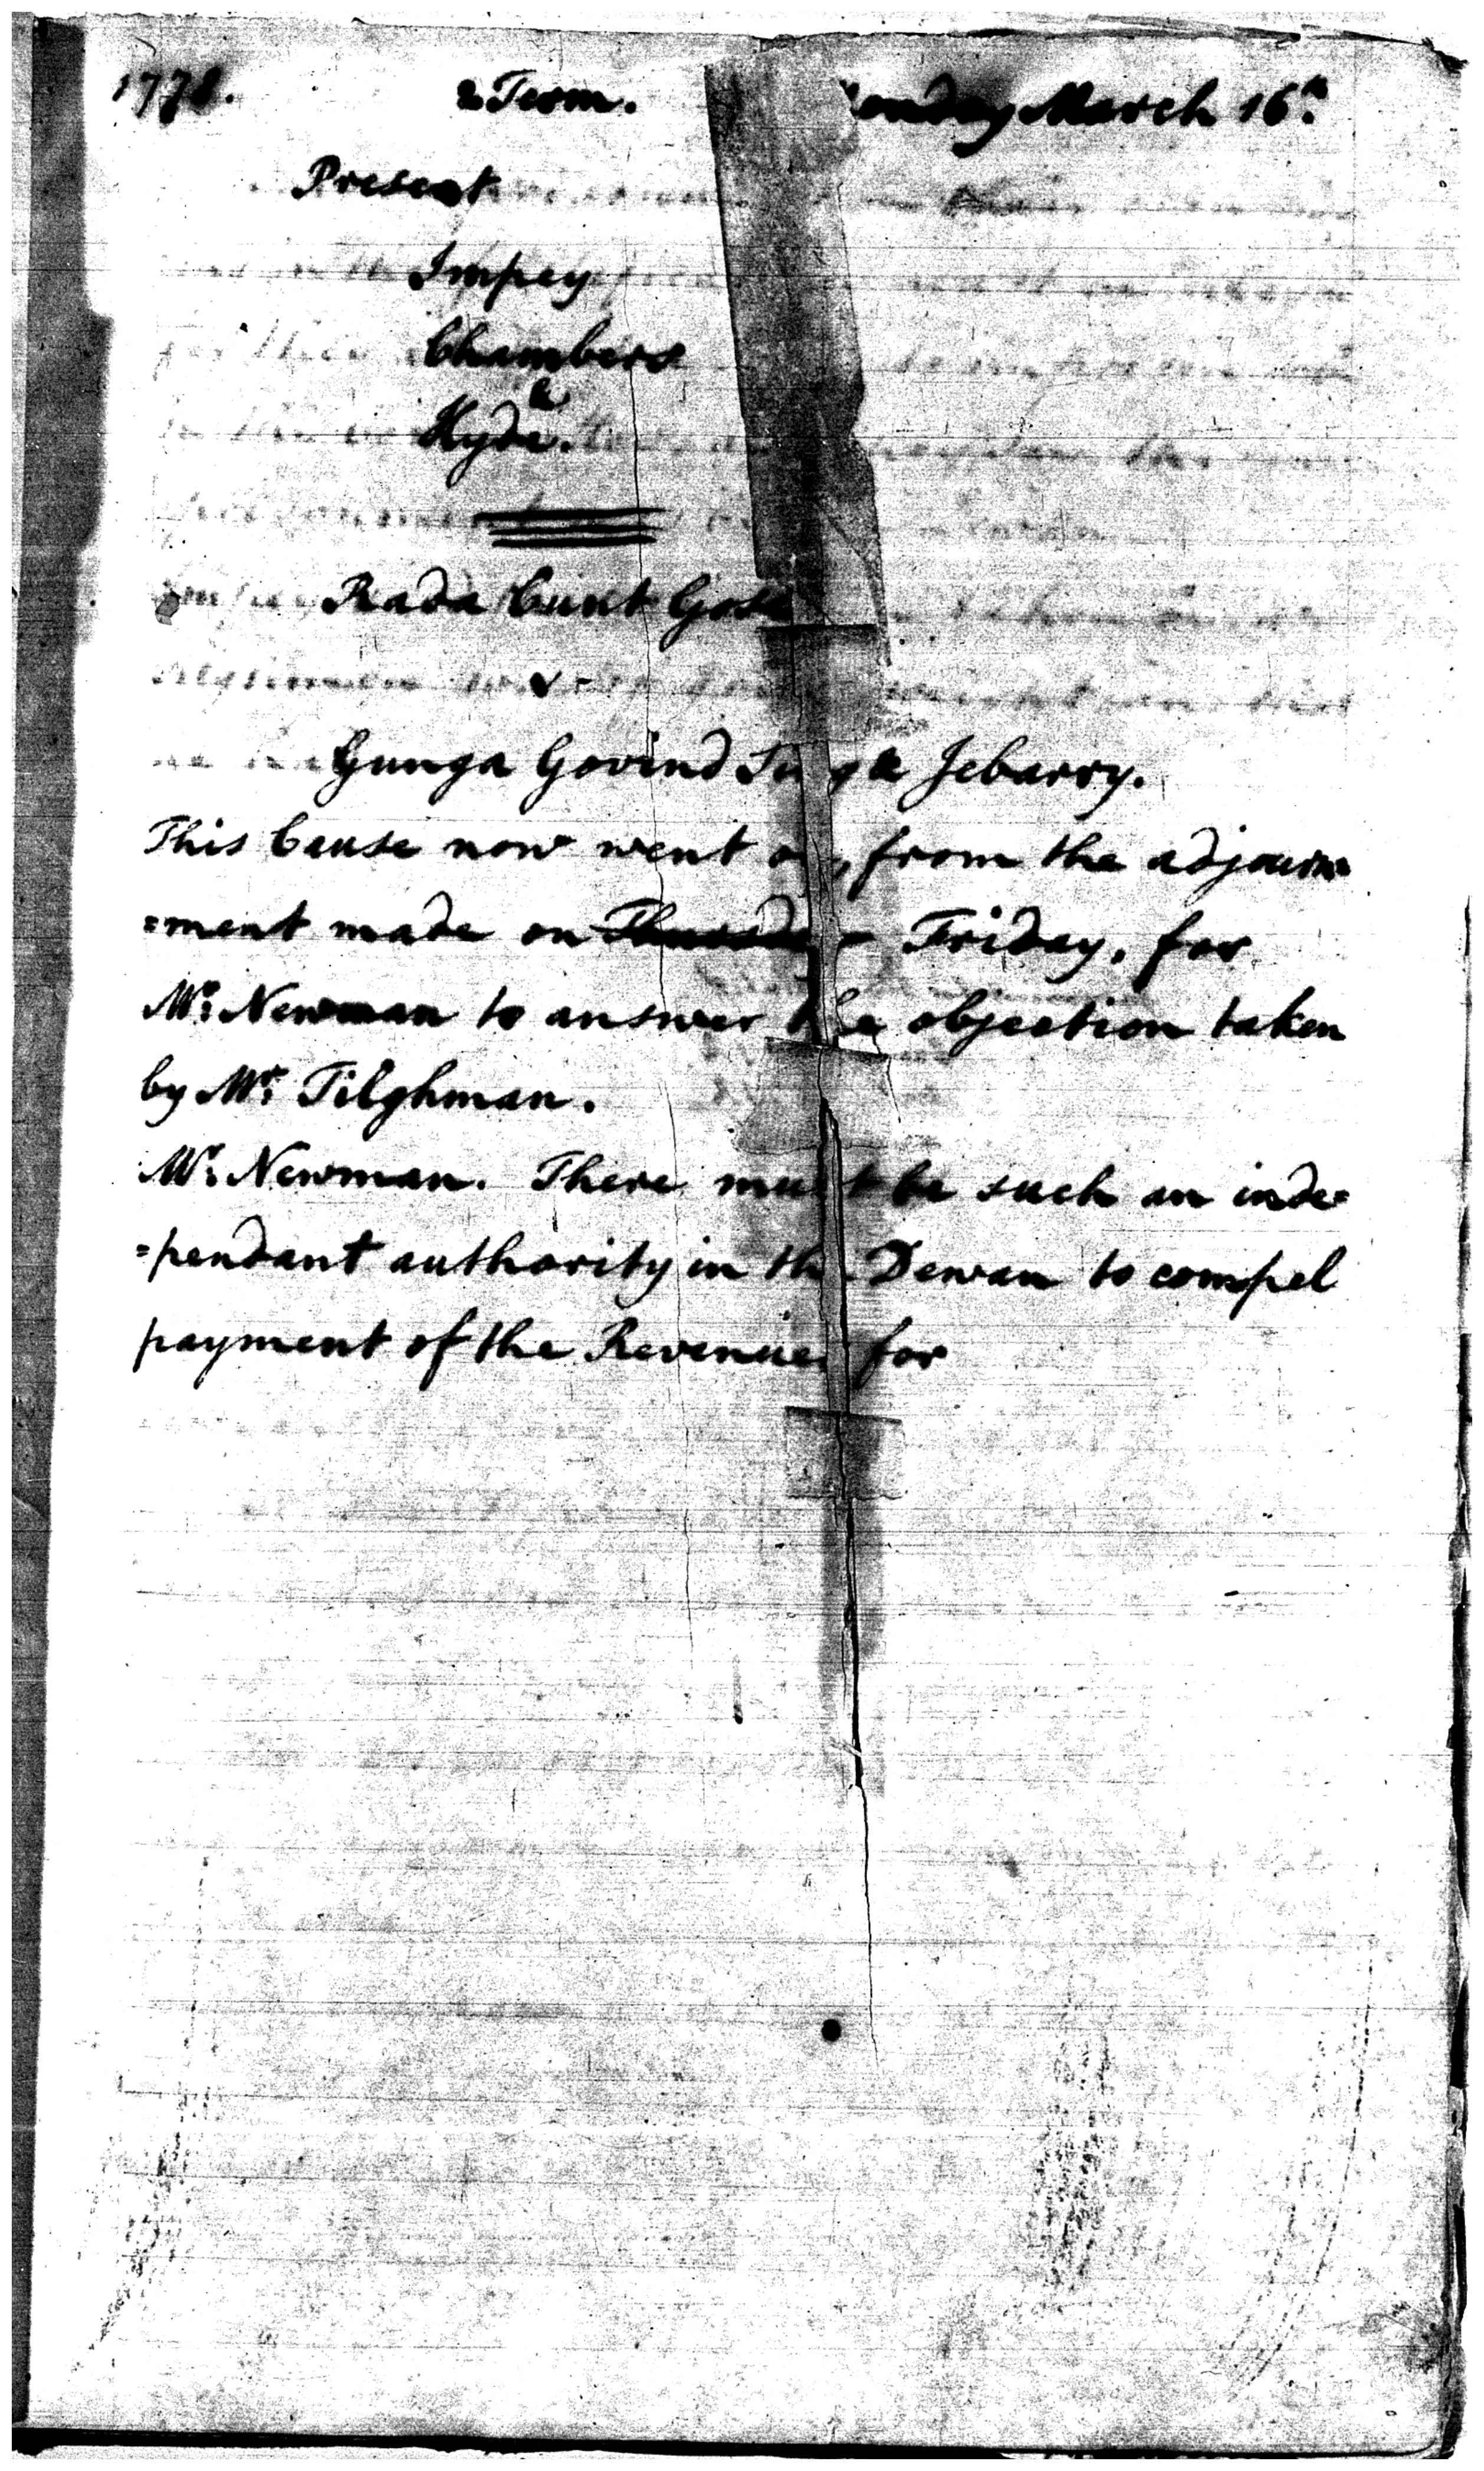 1778. 2 Term. onday March 16th
Present
Impey
Chambers
&
Hyde.
Rada Cunt Gose
v.
Gunga Govind & Jebarry.
This Cause now went on, from the adjourn
=ment made on Friday, for
Mr. Newman to answer the objection taken
by Mr. Tilghman.
Mr. Newman. There must be such an inde=
=pendant authority in the Dewan to compel
payment of the Revenues for